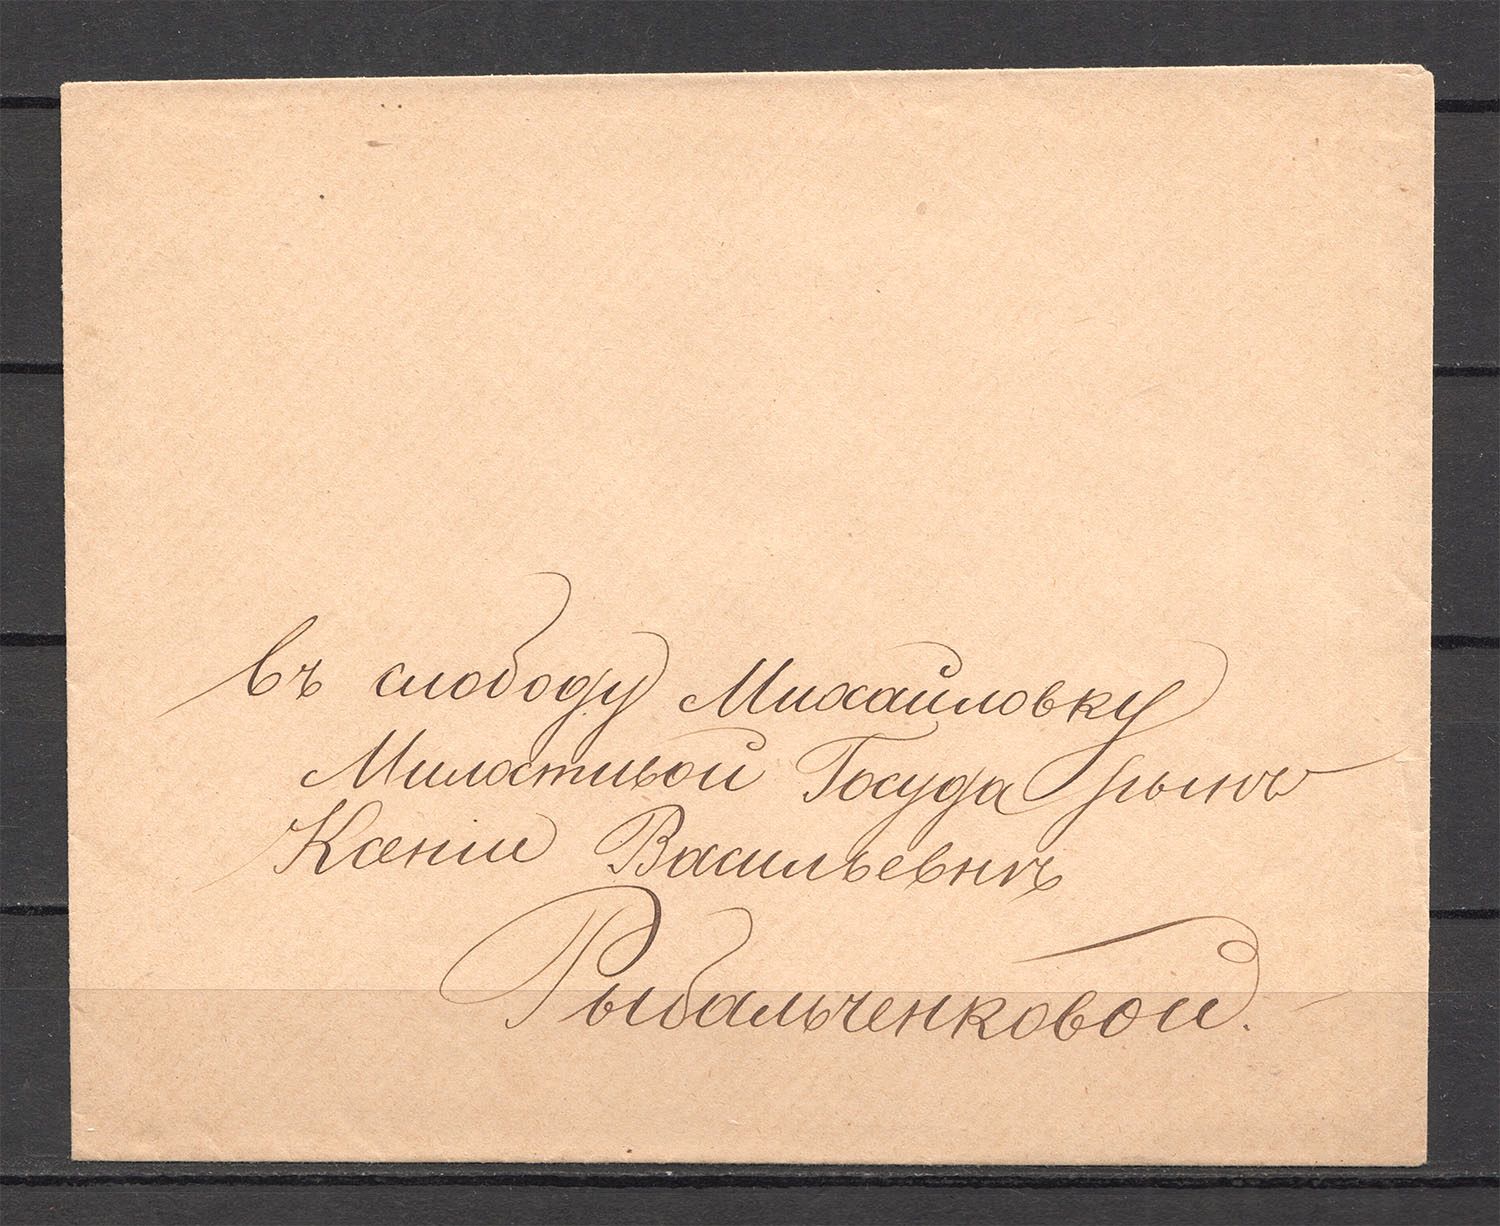 Въ слободу Михайловку
Милостивой Государынѣ
Ксеніи Васильевнѣ
Рыбальченковой.